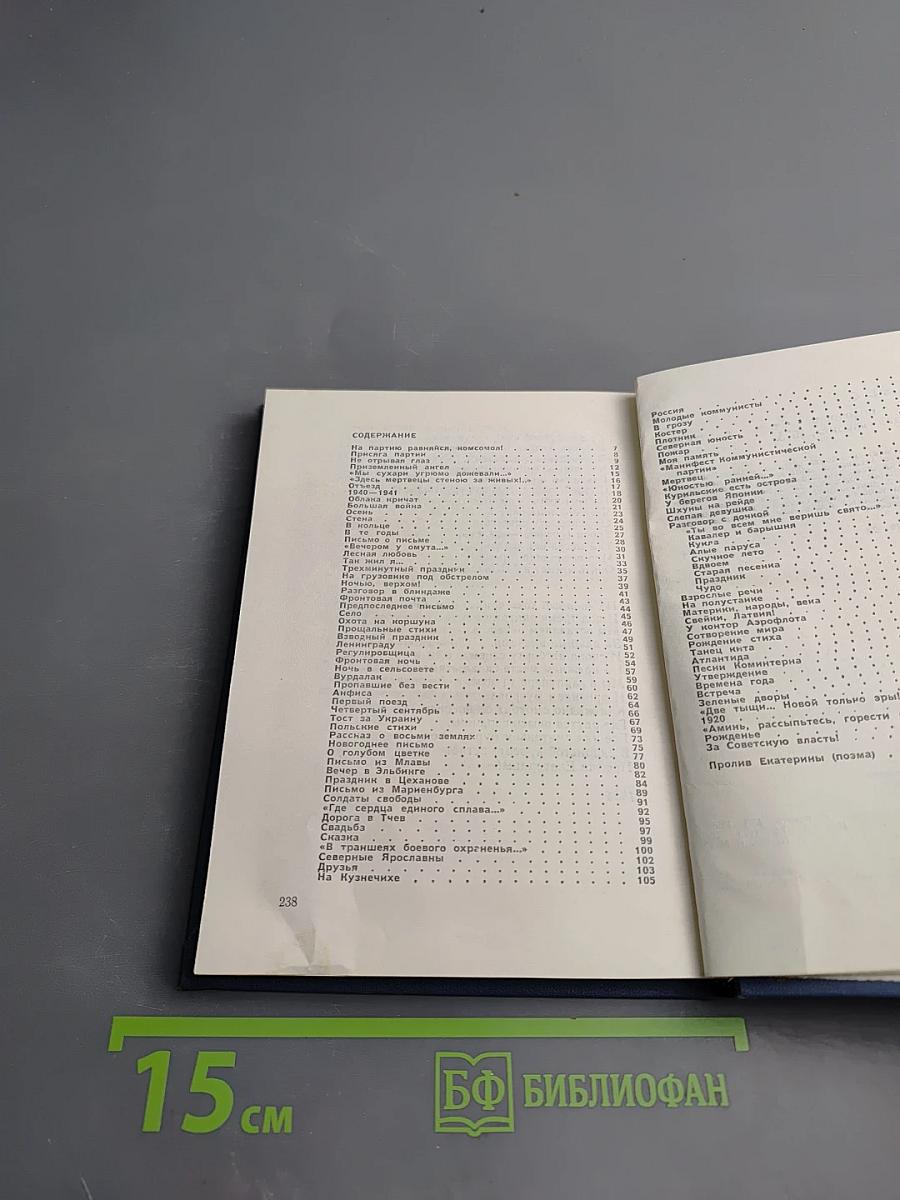 СОДЕРЖАНИЕ
На партию равняйся, комсомол! 7
Присяга партии 8
Не отрывая глаз 9
Приземленный ангел 12
«Мы сухари угрюмо дожевали...» 15
«Здесь мертвецы стеною за живых!..» 16
Отъезд 17
1940—1941 18
Облака кричат 20
Большая война 21
Осень 23
Стена 24
В кольце 25
В те годы 27
Письмо о письме 28
«Вечером у омута...» 30
Лесная любовь 31
Так жил я... 33
Трехминутный праздник 35
На грузовике под обстрелом 37
Ночью, верхом! 39
Разговор в блиндаже 41
Фронтовая почта 43
Предпоследнее письмо 44
Село 45
Охота на коршуна 46
Прощальные стихи 47
Взводный праздник 49
Ленинграду 51
Регулировщица 52
Фронтовая ночь 54
Ночь в сельсовете 57
Вурдалак 59
Пропавшие без вести 60
Анфиса 62
Первый поезд 64
Четвертый сентябрь 66
Тост за Украину 67
Польские стихи 69
Рассказ о восьми землях 73
Новогоднее письмо 75
О голубом цветке 77
Письмо из Млавы 80
Вечер в Эльбинге 82
Праздник в Цеханове 84
Письмо из Мариенбурга 89
Солдаты свободы 91
«Где сердца единого сплава...» 92
Дорога в Тчев 95
Свадьба 97
Сказка 99
«В траншеях боевого охраненья...» 100
Северные Ярославны 102
Друзья 103
На Кузнечихе 105
238
Россия
Молодые коммунисты
В грозу
Костер
Плотник
Северная юность
Пожар
Моя память
«Манифест Коммунистической
партии»
Мертвец
«Юностью ранней...»
Курильские есть острова
У берегов Японии
Шхуны на рейде
Слепая девушка
Разговор с дочкой
«Ты во всем мне веришь свято...»
Кавалер и барышня
Кукла
Алые паруса
Скучное лето
Вдвоем
Старая песенка
Праздник
Чудо
Взрослые речи
На полустанке
Материки, народы, века
Свейки, Латвия!
У контор Аэрофлота
Сотворение мира
Рождение стиха
Танец кита
Атлантида
Песни Коминтерна
Утверждение
Времена года
Встреча
Зеленые дворы
«Две тыщи... Новой только эры!
1920
«Аминь, рассыпьтесь, горести
Рожденье
За Советскую власть!
Пролив Екатерины (поэма)
15 см
БФ БИБЛИОФАН